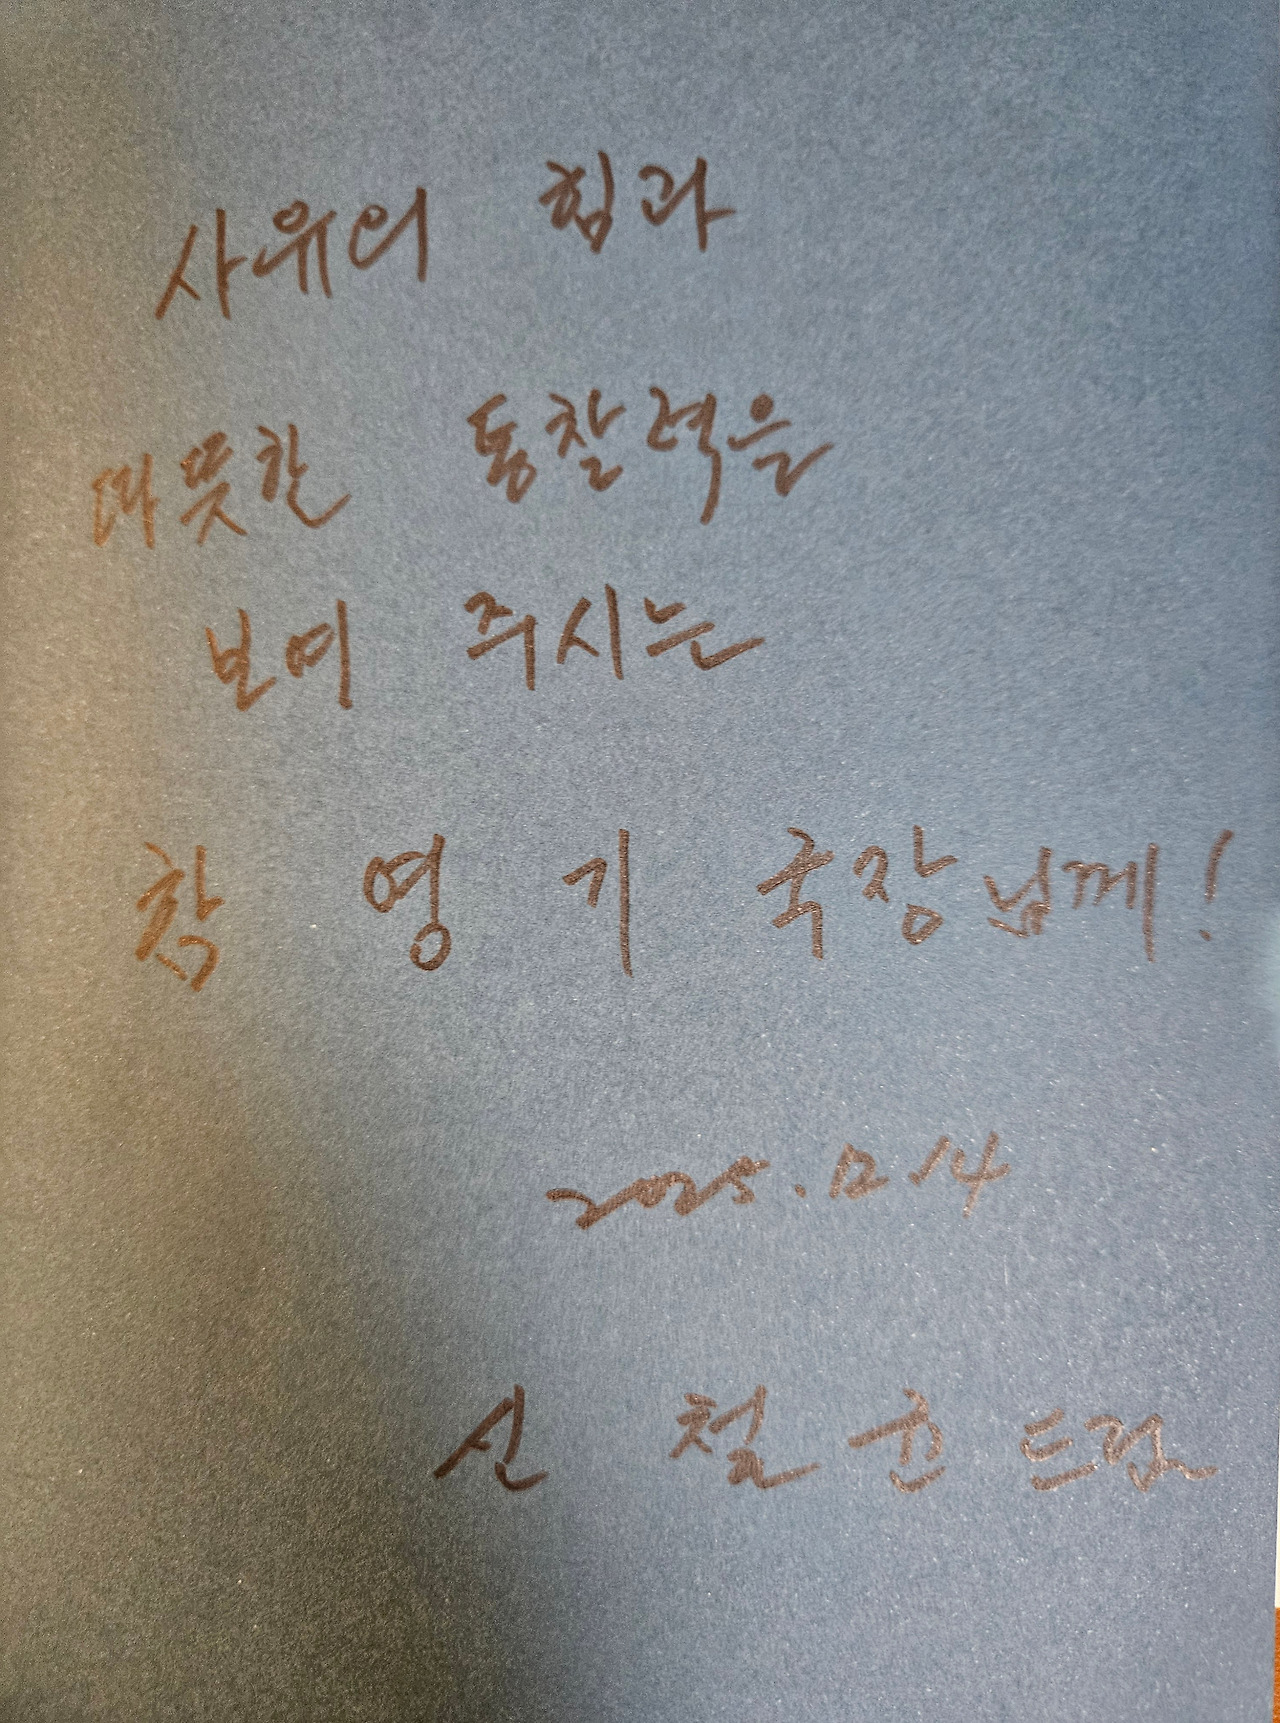 사유의 힘과
따뜻한 통찰력을
보여 주시는
영 기 국장님께!
2025. 12. 14
신 철 드림